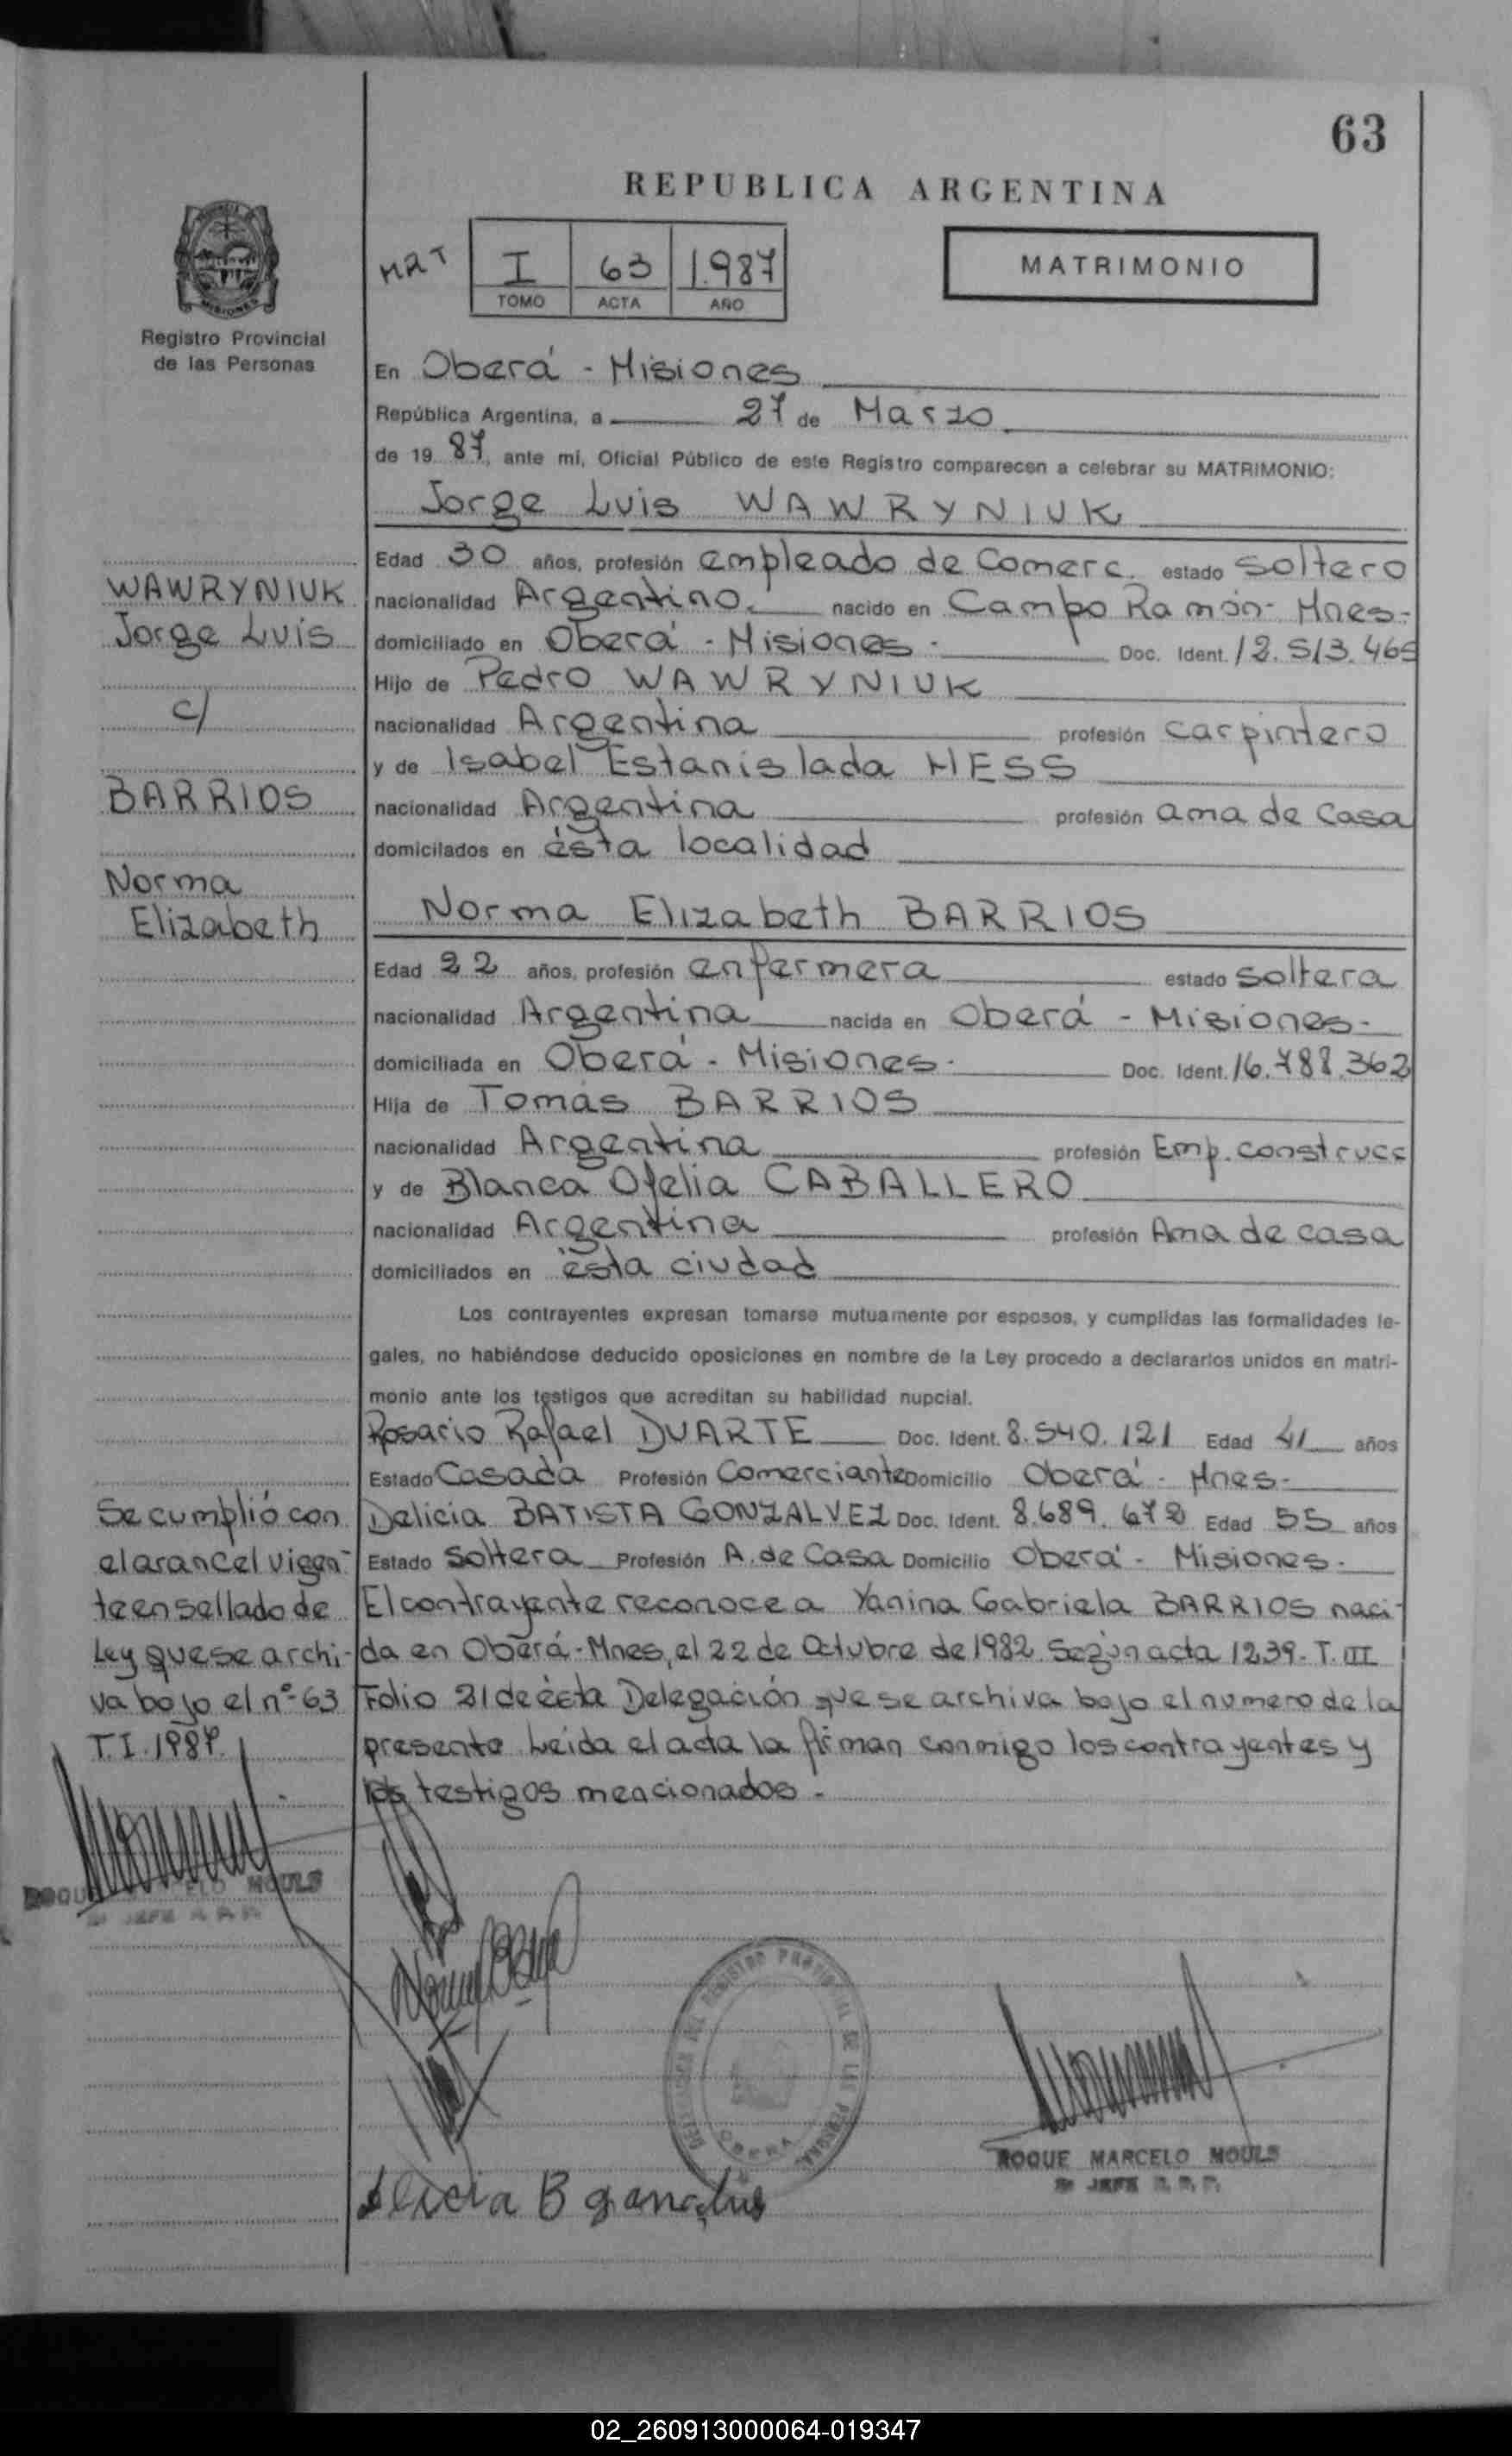 63
REPUBLICA ARGENTINA
MRT
I 63 1.987
TOMO ACTA AÑO
MATRIMONIO
Registro Provincial
de las Personas
En Oberá - Misiones
República Argentina, a 27 de Marzo
de 19 87, ante mí, Oficial Público de este Registro comparecen a celebrar su MATRIMONIO:
Jorge Luis WAWRYNIUK
Edad 30 años, profesión empleado de Comerc. estado soltero
nacionalidad Argentino. nacido en Campo Ramón - Mnes-
domiciliado en Oberá - Misiones - Doc. Ident. 12.513.465
Hijo de Pedro WAWRYNIUK
nacionalidad Argentina profesión carpintero
y de Isabel Estanislada HESS
nacionalidad Argentina profesión ama de Casa
domicilados en ésta localidad
Norma Elizabeth BARRIOS
Edad 22 años, profesión enfermera estado soltera
nacionalidad Argentina nacida en Oberá - Misiones-
domiciliada en Oberá - Misiones - Doc. Ident. 16.788.362
Hija de Tomás BARRIOS
nacionalidad Argentina profesión Emp. construcc
y de Blanca Ofelia CABALLERO
nacionalidad Argentina profesión Ama de casa
domiciliados en ésta ciudad
Los contrayentes expresan tomarse mutuamente por esposos, y cumplidas las formalidades le-
gales, no habiéndose deducido oposiciones en nombre de la Ley procedo a declararlos unidos en matri-
monio ante los testigos que acreditan su habilidad nupcial.
Rosario Rafael DUARTE Doc. Ident. 8.540.121 Edad 41 años
Estado Casada Profesión Comerciante Domicilio Oberá - Mnes-
Delicia BATISTA GONZALVEZ Doc. Ident. 8.689.672 Edad 55 años
Estado Soltera Profesión A. de Casa Domicilio Oberá - Misiones-
El contrayente reconoce a Yanina Gabriela BARRIOS naci-
da en Oberá-Mnes, el 22 de Octubre de 1982 Según acta 1239- T. III
Folio 21 de ésta Delegación que se archiva bajo el numero de la
presente Leida el acta la firman conmigo los contrayentes y
los testigos mencionados -
WAWRYNIUK
Jorge Luis
c/
BARRIOS
Norma
Elizabeth
Se cumplió con
el arancel vigen-
te en sellado de
Ley que se archi-
va bajo el nº 63
T. I. 1987.
MOULS
OBERA
ROQUE MARCELO MOULS
JEFE R. P. P.
02_260913000064-019347